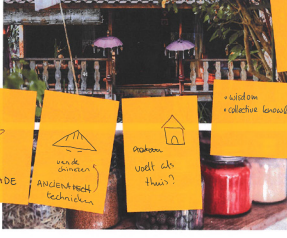 van de
chinezen
ANCIENT
technieken
voelt als
thuis?
• wisdom
• collective knowl
ADE